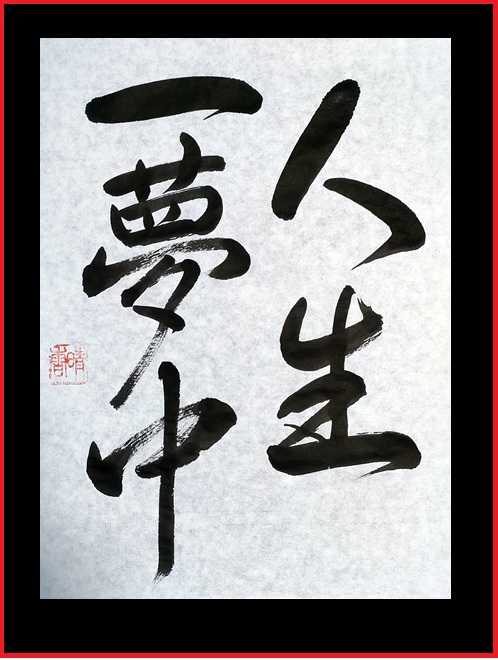 人生
一夢中